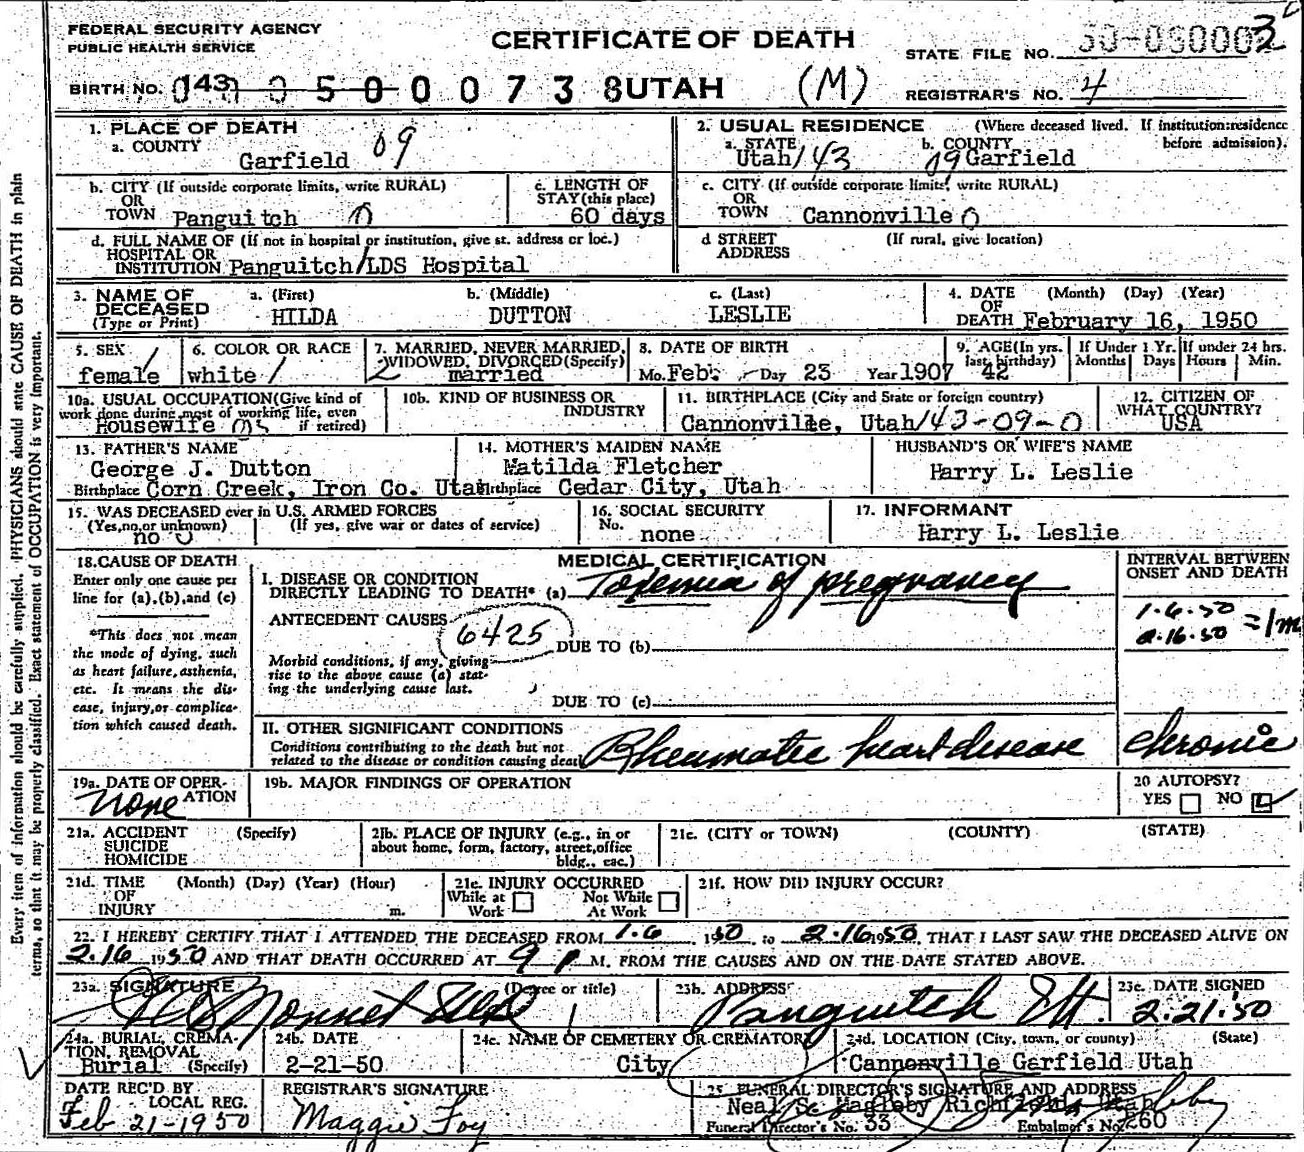 FEDERAL SECURITY AGENCY
PUBLIC HEALTH SERVICE
CERTIFICATE OF DEATH
STATE FILE NO.
BIRTH NO. 143 0 5 0 0 0 7 3 8 UTAH (M)
REGISTRAR'S NO. 4
1. PLACE OF DEATH
a. COUNTY
Garfield 09
2. USUAL RESIDENCE (Where deceased lived. If institution:residence before admission).
a. STATE b. COUNTY
Utah/43 09 Garfield
b. CITY (If outside corporate limits, write RURAL)
OR
TOWN Panguitch 0
c. LENGTH OF
STAY (this place)
60 days
c. CITY (If outside corporate limits, write RURAL)
OR
TOWN Cannonville 0
d. FULL NAME OF (If not in hospital or institution, give st. address or loc.)
HOSPITAL OR
INSTITUTION Panguitch/LDS Hospital
d STREET (If rural, give location)
ADDRESS
3. NAME OF a. (First) b. (Middle) c. (Last)
DECEASED
(Type or Print) HILDA DUTTON LESLIE
4. DATE (Month) (Day) (Year)
OF
DEATH February 16, 1950
5. SEX /
female
6. COLOR OR RACE
white /
7. MARRIED, NEVER MARRIED,
WIDOWED, DIVORCED (Specify)
2 married
8. DATE OF BIRTH
Mo. Feb. Day 23 Year 1907
9. AGE (In yrs.
last birthday)
42
If Under 1 Yr.
Months Days
If under 24 hrs.
Hours Min.
10a. USUAL OCCUPATION (Give kind of
work done during most of working life, even
if retired)
Housewife
10b. KIND OF BUSINESS OR
INDUSTRY
11. BIRTHPLACE (City and State or foreign country)
Cannonville, Utah/43-09-0
12. CITIZEN OF
WHAT COUNTRY?
USA
13. FATHER'S NAME
George J. Dutton
Birthplace Corn Creek, Iron Co. Utah
14. MOTHER'S MAIDEN NAME
Matilda Fletcher
Birthplace Cedar City, Utah
HUSBAND'S OR WIFE'S NAME
Harry L. Leslie
15. WAS DECEASED ever in U.S. ARMED FORCES
(Yes, no, or unknown) (If yes, give war or dates of service)
no 0
16. SOCIAL SECURITY
No. none
17. INFORMANT
Harry L. Leslie
18. CAUSE OF DEATH
Enter only one cause per
line for (a), (b), and (c)
*This does not mean
the mode of dying, such
as heart failure, asthenia,
etc. It means the dis-
ease, injury, or complica-
tion which caused death.
MEDICAL CERTIFICATION
I. DISEASE OR CONDITION
DIRECTLY LEADING TO DEATH* (a) Toxemia of pregnancy
ANTECEDENT CAUSES
6425
DUE TO (b)
Morbid conditions, if any, giving
rise to the above cause (a) stat-
ing the underlying cause last.
DUE TO (c)
II. OTHER SIGNIFICANT CONDITIONS
Conditions contributing to the death but not
related to the disease or condition causing death
Rheumatic heart disease
INTERVAL BETWEEN
ONSET AND DEATH
1-6-50
2-16-50 = 1m
chronic
19a. DATE OF OPER-
ATION
None
19b. MAJOR FINDINGS OF OPERATION
20 AUTOPSY?
YES NO
21a. ACCIDENT (Specify)
SUICIDE
HOMICIDE
21b. PLACE OF INJURY (e.g., in or
about home, form, factory, street, office
bldg., etc.)
21c. (CITY or TOWN) (COUNTY) (STATE)
21d. TIME (Month) (Day) (Year) (Hour)
OF
INJURY m.
21e. INJURY OCCURRED
While at Work Not While At Work
21f. HOW DID INJURY OCCUR?
22. I HEREBY CERTIFY THAT I ATTENDED THE DECEASED FROM 1-6, 1950 to 2-16 1950, THAT I LAST SAW THE DECEASED ALIVE ON
2-16 1950 AND THAT DEATH OCCURRED AT 9 P M. FROM THE CAUSES AND ON THE DATE STATED ABOVE.
23a. SIGNATURE (Degree or title)
23b. ADDRESS
Panguitch Ut.
23c. DATE SIGNED
2-21-50
24a. BURIAL, CREMA-
TION, REMOVAL
Burial (Specify)
24b. DATE
2-21-50
24c. NAME OF CEMETERY OR CREMATORY
City
24d. LOCATION (City, town, or county) (State)
Cannonville Garfield Utah
DATE REC'D BY
LOCAL REG.
Feb 21-1950
REGISTRAR'S SIGNATURE
Maggie Foy
25 FUNERAL DIRECTOR'S SIGNATURE AND ADDRESS
Neal S. Magleby Richfield Utah
Funeral Director's No. 33 Embalmer's No. 260
Every item of information should be carefully supplied. PHYSICIANS should state CAUSE OF DEATH in plain
terms, so that it may be properly classified. Exact statement of OCCUPATION is very important.